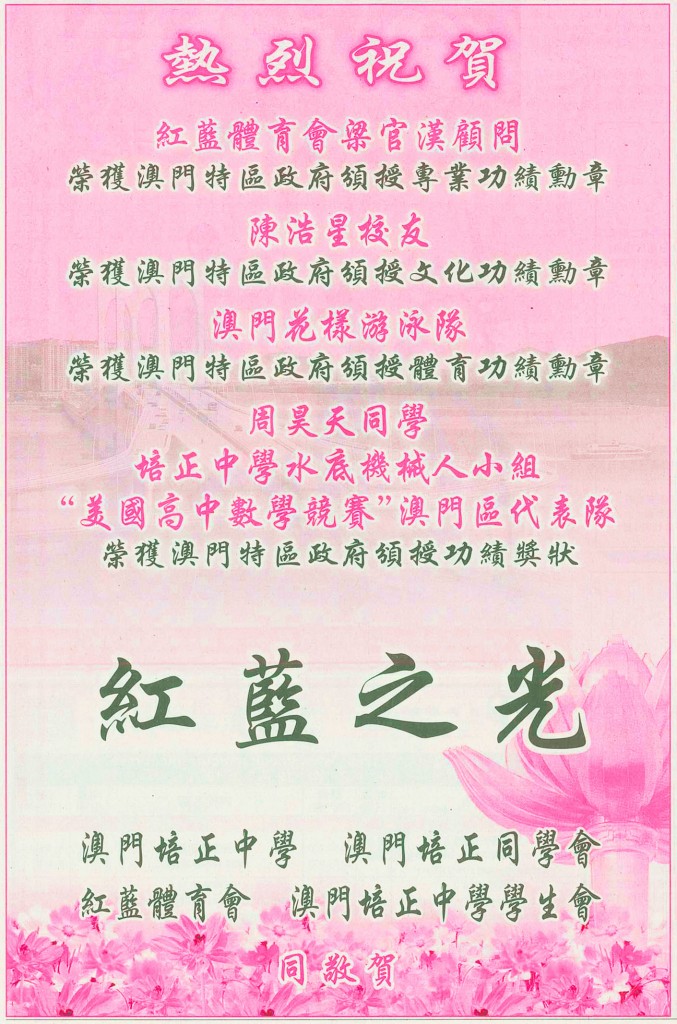 熱烈祝賀
紅藍體育會梁官漢顧問
榮獲澳門特區政府頒授專業功績勳章
陳浩星校友
榮獲澳門特區政府頒授文化功績勳章
澳門花樣游泳隊
榮獲澳門特區政府頒授體育功績勳章
周昊天同學
培正中學水底機械人小組
“美國高中數學競賽”澳門區代表隊
榮獲澳門特區政府頒授功績獎狀
紅藍之光
澳門培正中學　澳門培正同學會
紅藍體育會　澳門培正中學學生會
同敬賀